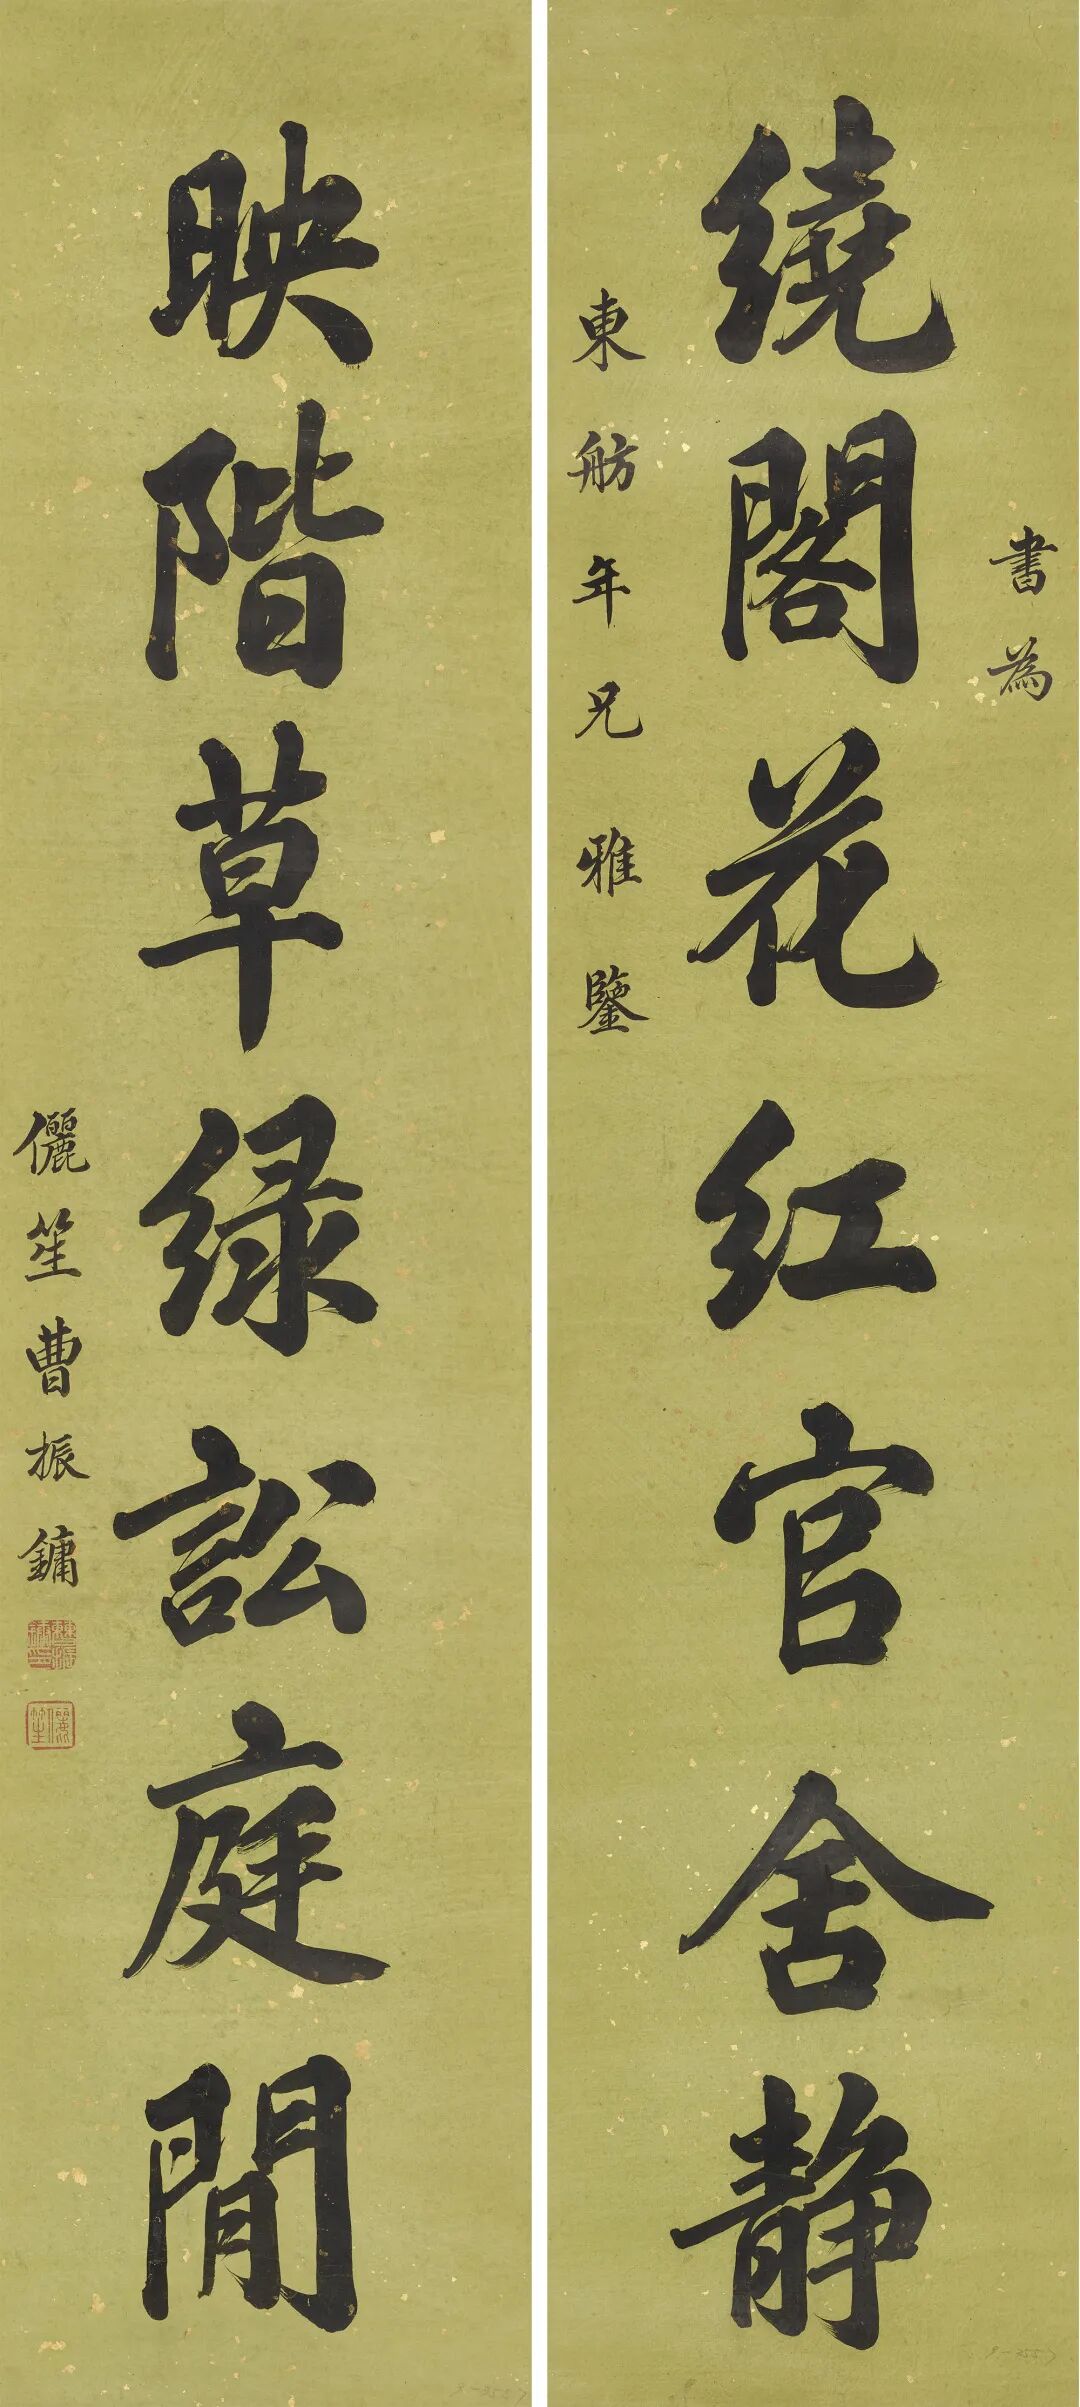 書為
繞閣花红官舍静
東舫年兄雅鑒
映階草緑訟庭閒
儷笙曹振鏞
儷笙